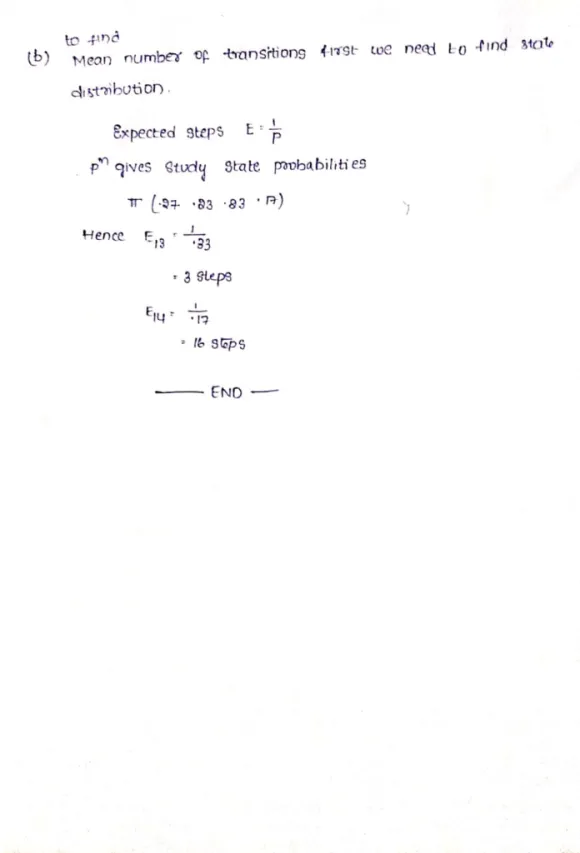 to find
(b) Mean number of transitions first we need to find state
distribution.
Expected steps E = 1/p
pⁿ gives Study State probabilities
π (.27 .33 .33 .17)
Hence E₁₃ = 1/.33
= 3 steps
E₁₄ = 1/.17
= 16 steps
—— END —